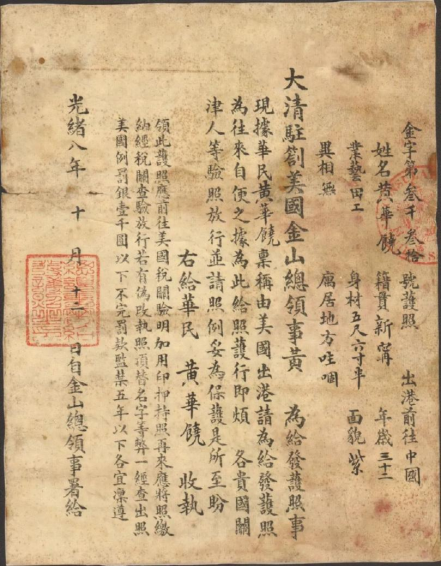 金字第叁千叁拾 號護照 出港前往中國
姓名黄華饒 籍貫新寗 年歲三十二
業藝田工 身材五尺六寸半 面貌紫
異相無 寓居地方哇嗰
大清駐劄美國金山總領事黃 為給發護照事
現據華民黄華饒稟稱由美國出港請為給發護照
為往來自便之據為此給照護行即煩 各貴國關
津人等驗照放行並請照例妥為保護是所至盼
右給華民 黄華饒 收執
領此護照應前往美國稅關驗明加用印押持照再來應將照繳
納經稅關查驗放行若有偽改執照頂替名字等弊一經查出照
美國例罰銀壹千圓以下不完罰欵監禁五年以下各宜凜遵
光緒八年 十 月 十 日自金山總領事署給